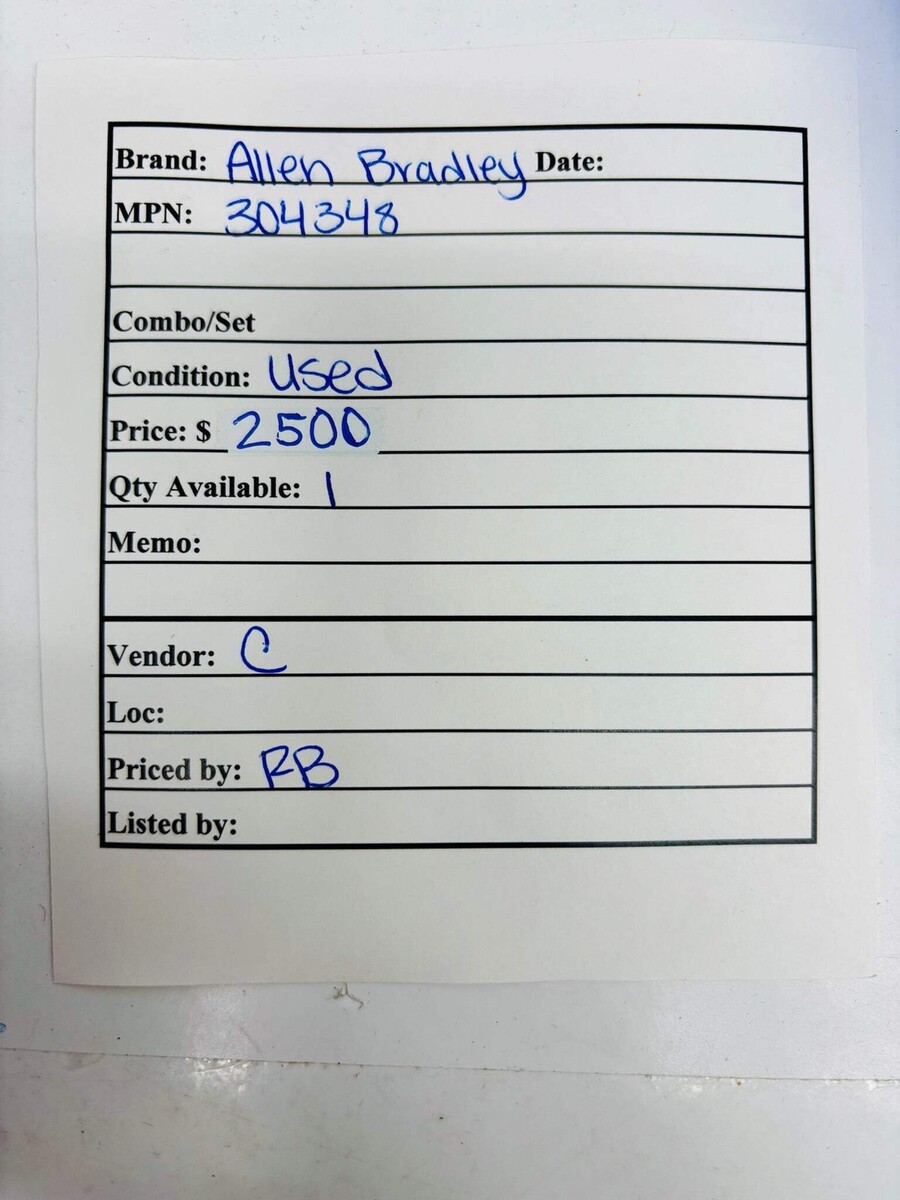 Brand: Allen Bradley Date:
MPN: 304348
Combo/Set
Condition: Used
Price: $ 2500
Qty Available: 1
Memo:
Vendor: C
Loc:
Priced by: RB
Listed by: